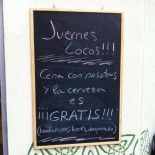 Juernes
Locos!!!
Cena con nosotros
y la cerveza
es
¡¡¡GRATIS!!!